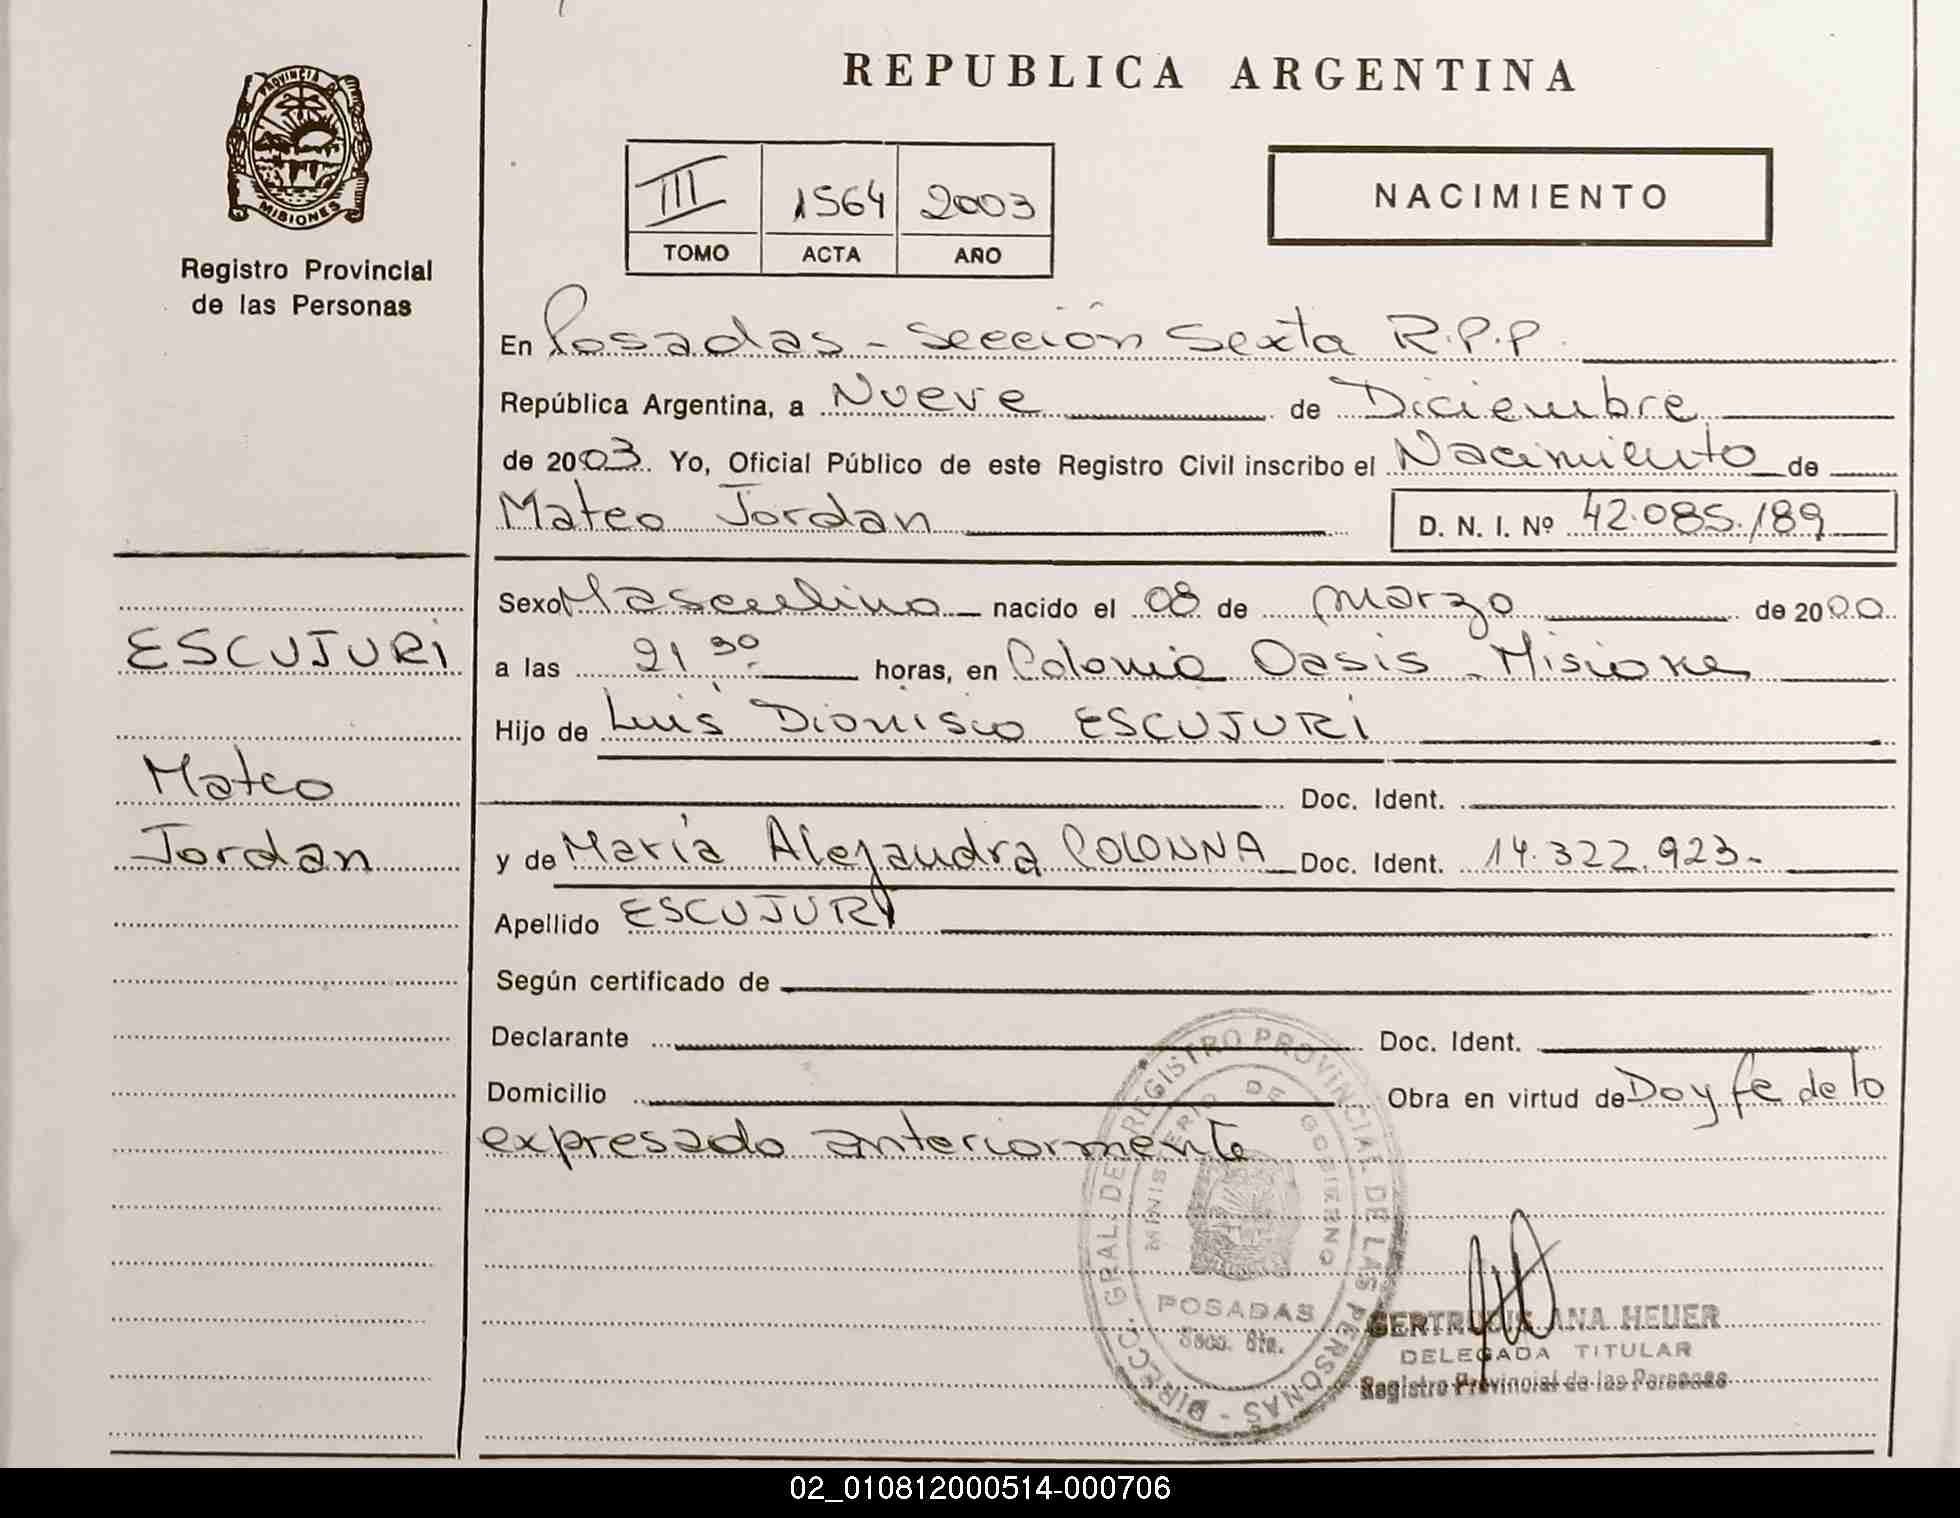 REPUBLICA ARGENTINA
PROVINCIA DE MISIONES
Registro Provincial
de las Personas
III 1564 2003
TOMO ACTA AÑO
NACIMIENTO
En Posadas - Sección Sexta R.P.P.
República Argentina, a Nueve de Diciembre
de 2003. Yo, Oficial Público de este Registro Civil inscribo el Nacimiento de
Mateo Jordan D. N. I. Nº 42.085.189
Sexo Masculino nacido el 08 de marzo de 2000
a las 21 30 horas, en Colonia Oasis - Misiones
Hijo de Luis Dionisio ESCUJURI
Doc. Ident.
y de María Alejandra COLONNA Doc. Ident. 14.322.923-
Apellido ESCUJURI
Según certificado de
Declarante Doc. Ident.
Domicilio Obra en virtud de Doy fe de lo
expresado anteriormente
ESCUJURI
Mateo
Jordan
DIRECC. GRAL. DE REGISTRO PROVINCIAL DE LAS PERSONAS -
MINISTERIO DE GOBIERNO
POSADAS
Secc. 6ta.
GERTRUDIS ANA HEUER
DELEGADA TITULAR
Registro Provincial de las Personas
02_010812000514-000706